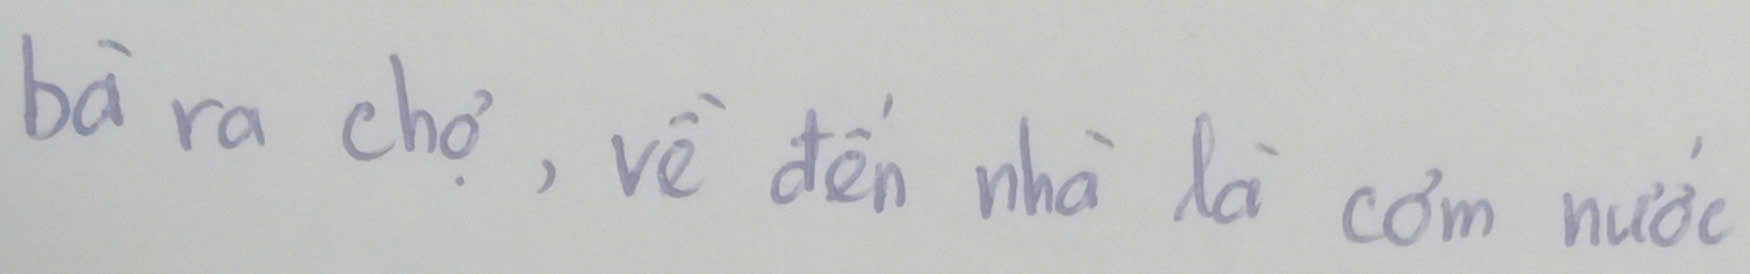 bà ra chợ, về đến nhà là cơm nước